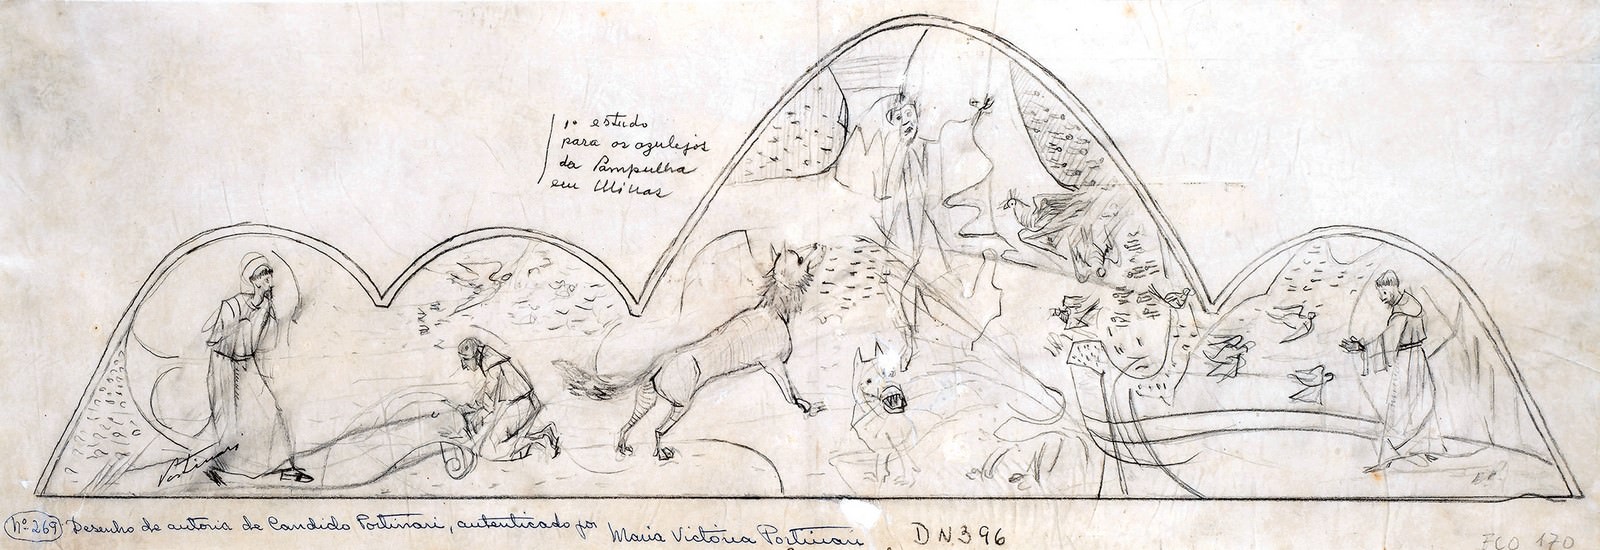 1º estudo
para os azulejos
da Pampulha
em Minas
Portinari
Nº 269 Desenho de autoria de Candido Portinari, autenticado por Maria Victória Portinari
DN396
FCO 170